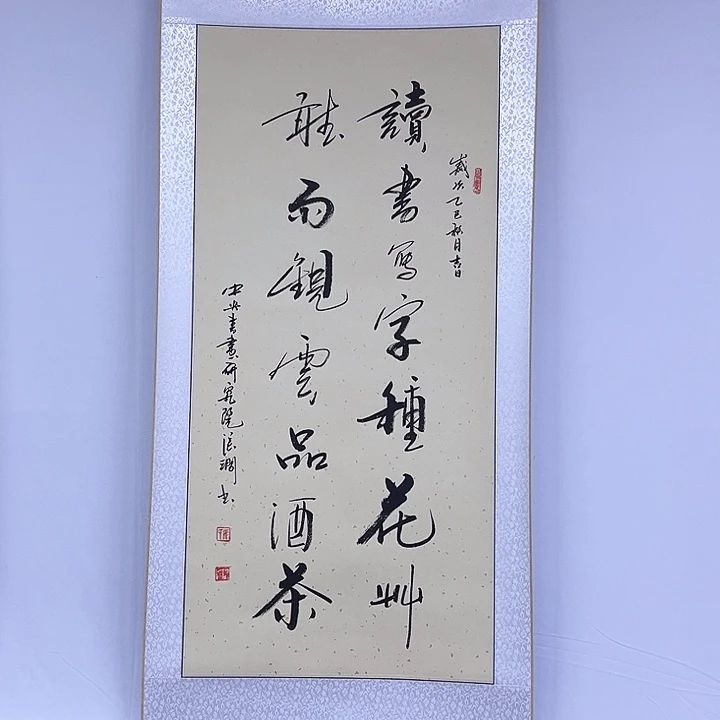 歲次乙巳秋月吉日
讀書写字種花艸
聽雨觀雲品酒茶
中央書畫研究院 书